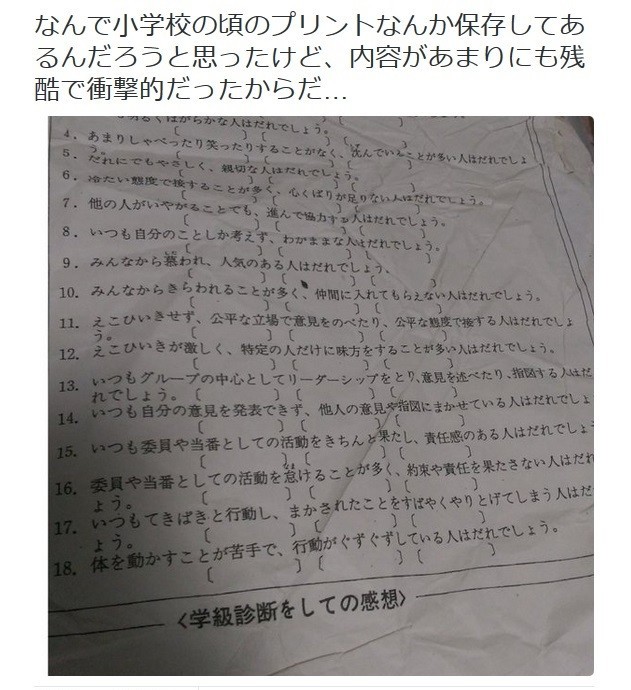 なんで小学校の頃のプリントなんか保存してあ
るんだろうと思ったけど、内容があまりにも残
酷で衝撃的だったからだ...
明るくほがらかな人はだれでしょう。
4. あまりしゃべったり笑ったりすることがなく、沈んでいることが多い人はだれでしょ
う。〔 〕〔 〕〔 〕
5. だれにでもやさしく、親切な人はだれでしょう。
〔 〕〔 〕〔 〕
6. 冷たい態度で接することが多く、心くばりが足りない人はだれでしょう。
〔 〕〔 〕〔 〕
7. 他の人がいやがることでも、進んで協力する人はだれでしょう。
〔 〕〔 〕〔 〕
8. いつも自分のことしか考えず、わがままな人はだれでしょう。
〔 〕〔 〕〔 〕
9. みんなから慕われ、人気のある人はだれでしょう。
〔 〕〔 〕〔 〕
10. みんなからきらわれることが多く、仲間に入れてもらえない人はだれでしょう。
〔 〕〔 〕〔 〕
11. えこひいきせず、公平な立場で意見をのべたり、公平な態度で接する人はだれでしょ
う。〔 〕〔 〕〔 〕
12. えこひいきが激しく、特定の人だけに味方をすることが多い人はだれでしょう。
〔 〕〔 〕〔 〕
13. いつもグループの中心としてリーダーシップをとり、意見を述べたり、指図する人はだ
れでしょう。〔 〕〔 〕〔 〕
14. いつも自分の意見を発表できず、他人の意見や指図にまかせている人はだれでしょ
〔 〕〔 〕〔 〕
15. いつも委員や当番としての活動をきちんと果たし、責任感のある人はだれでしょ
〔 〕〔 〕〔 〕
16. 委員や当番としての活動を怠けることが多く、約束や責任を果たさない人はだれ
ょう。〔 〕〔 〕〔 〕
17. いつもてきぱきと行動し、まかされたことをすばやくやりとげてしまう人はだ
ょう。〔 〕〔 〕〔 〕
18. 体を動かすことが苦手で、行動がぐずぐずしている人はだれでしょう。
〔 〕〔 〕〔 〕
〈学級診断をしての感想〉